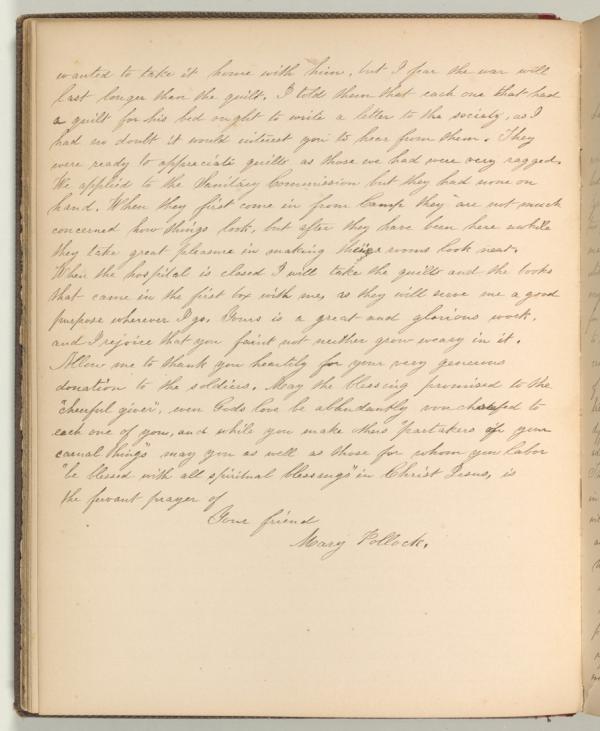 wanted to take it home with him, but I fear the war will
last longer than the quilt. I told them that each one that had
a quilt for his bed ought to write a letter to the society, as I
had no doubt it would interest you to hear from them. They
were ready to appreciate quilts as those we had were very ragged.
We applied to the Sanitary Commission but they had none on
hand. When they first come in from Camp they are not much
concerned how things look, but after they have been here awhile
they take great pleasure in making their rooms look neat.
When the hospital is closed I will take the quilts and the books
that came in the first box with me, as they will serve me a good
purpose wherever I go. Yours is a great and glorious work.
and I rejoice that you faint not neither grow weary in it.
Allow me to thank you heartily for your very generous
donation to the soldiers. May the blessing promised to the
"cheerful giver", even Gods love be abbundantly vouchsafed to
each one of you, and while you make them "partakers of your
carnal things" may you as well as those for whom you labor
"be blessed with all spiritual blessings" in Christ Jesus, is
the fervant prayer of
Your friend
Mary Pollock.